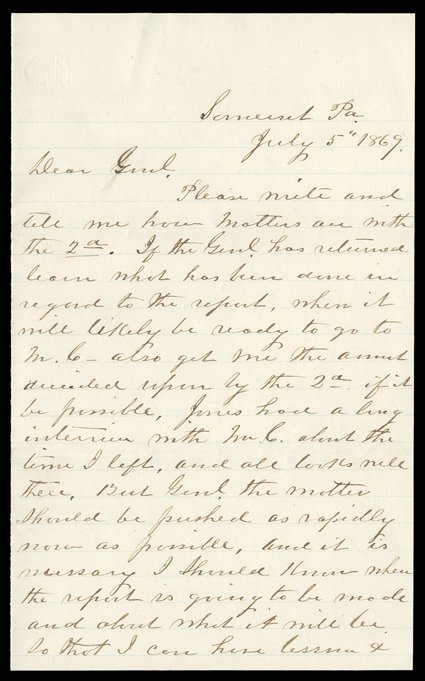 Somerset Pa.
July 5" 1869.
Dear Genl.
Please write and
tell me how matters are with
the 2d. If the Genl. has returned
learn what has been done in
regard to the report, when it
will likely be ready to go to
Mr. C- also get me the amut
decided upon by the 2d if it
be possible, Jones had a long
interview with Mr. C. about the
time I left, and all looks well
there, But Genl. the matter
should be pushed as rapidly
now as possible, and it is
necessary I should know when
the report is going to be made
and about what it will be.
so that I can have &